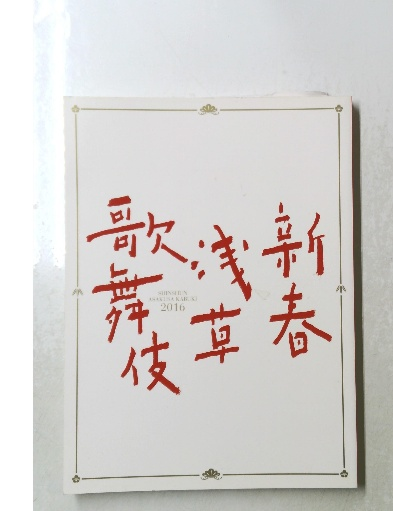 新春
浅草
歌舞伎
SHINSHUN
ASAKUSA KABUKI
2016